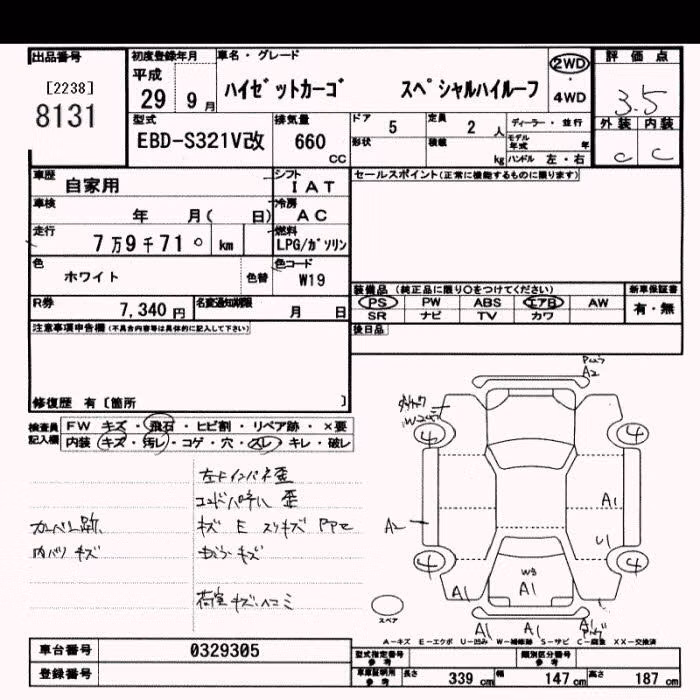 出品番号
[2238]
8131
初度登録年月
平成
29 9 月
車名・グレード
ハイゼットカーゴ スペシャルハイルーフ
2WD
4WD
評価点
3.5
外装 内装
C C
型式
EBD-S321V改
排気量
660
CC
ドア
5
定員
2 人
ディーラー・並行
形状
積載
kg
モデル年式 年
ハンドル 左・右
車歴
自家用
シフト
I A T
車検
年 月( 日)
冷房
A C
走行
7万9千710 km
燃料
LPG/ガソリン
色
ホワイト
色替
色コード
W19
R券
7,340 円
名変通知期限
月 日
セールスポイント(正常に機能するものに限ります)
装備品 (純正品に限り〇をつけてください)
新車保証書
PS PW ABS エアB AW
有・無
SR ナビ TV カワ
後日品
注意事項申告欄(不具合内容等は具体的に記入して下さい)
修復歴 有〔箇所 〕
検査員記入欄
FW キズ・飛石・ヒビ割・リペア跡・×要
内装 キズ・汚レ・コゲ・穴・スレ・キレ・破レ
左ドインパネ歪
キズ E スリキズ
内バリ キズ
荷室 キズ ヘコミ
A2
4 4
A1
A2
U1
4 4
W3
A1
A1 A1
A1 A1
スペア
A-キズ E-エクボ U-凹み W-補修跡 S-サビ C-腐蝕 XX-交換済
車台番号
0329305
登録番号
型式指定番号 参考
類別区分番号 参考
車庫証明用 参考
長さ 339 cm 幅 147 cm 高さ 187 cm